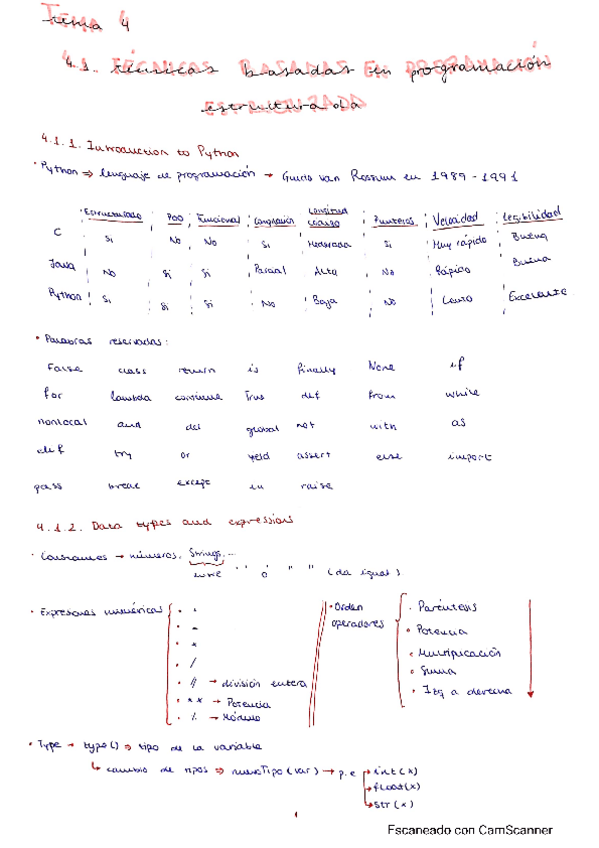 Tema 4
4.1. Técnicas basadas en programación
estructurada
4.1.1. Introduction to Python
· Python ⇒ lenguaje de programación → Guido van Rossum en 1989-1991
Estructurado POO Funcional Compilación Cantidad código Punteros Velocidad Legibilidad
C Si No No Si Moderada Si Muy rápido Buena
Java No Si Si Parcial Alta No Rápido Buena
Python Si Si Si No Baja No Lento Excelente
· Palabras reservadas:
False class return is finally None if
for lambda continue True def from while
nonlocal and del global not with as
elif try or yield assert else import
pass break except in raise
4.1.2. Data types and expressions
· Constantes → números, Strings,...
entre ' ' ó " " (da igual)
· Expresiones numéricas
· +
· -
· *
· /
· // → división entera
· ** → Potencia
· % → Módulo
· Orden operadores
· Paréntesis
· Potencia
· Multiplicación
· Suma
· Izq a derecha
· Type → type() ⇒ tipo de la variable
↳ cambio de tipos ⇒ nuevoTipo(var) → p.e
int(x)
float(x)
str(x)
1
Escaneado con CamScanner